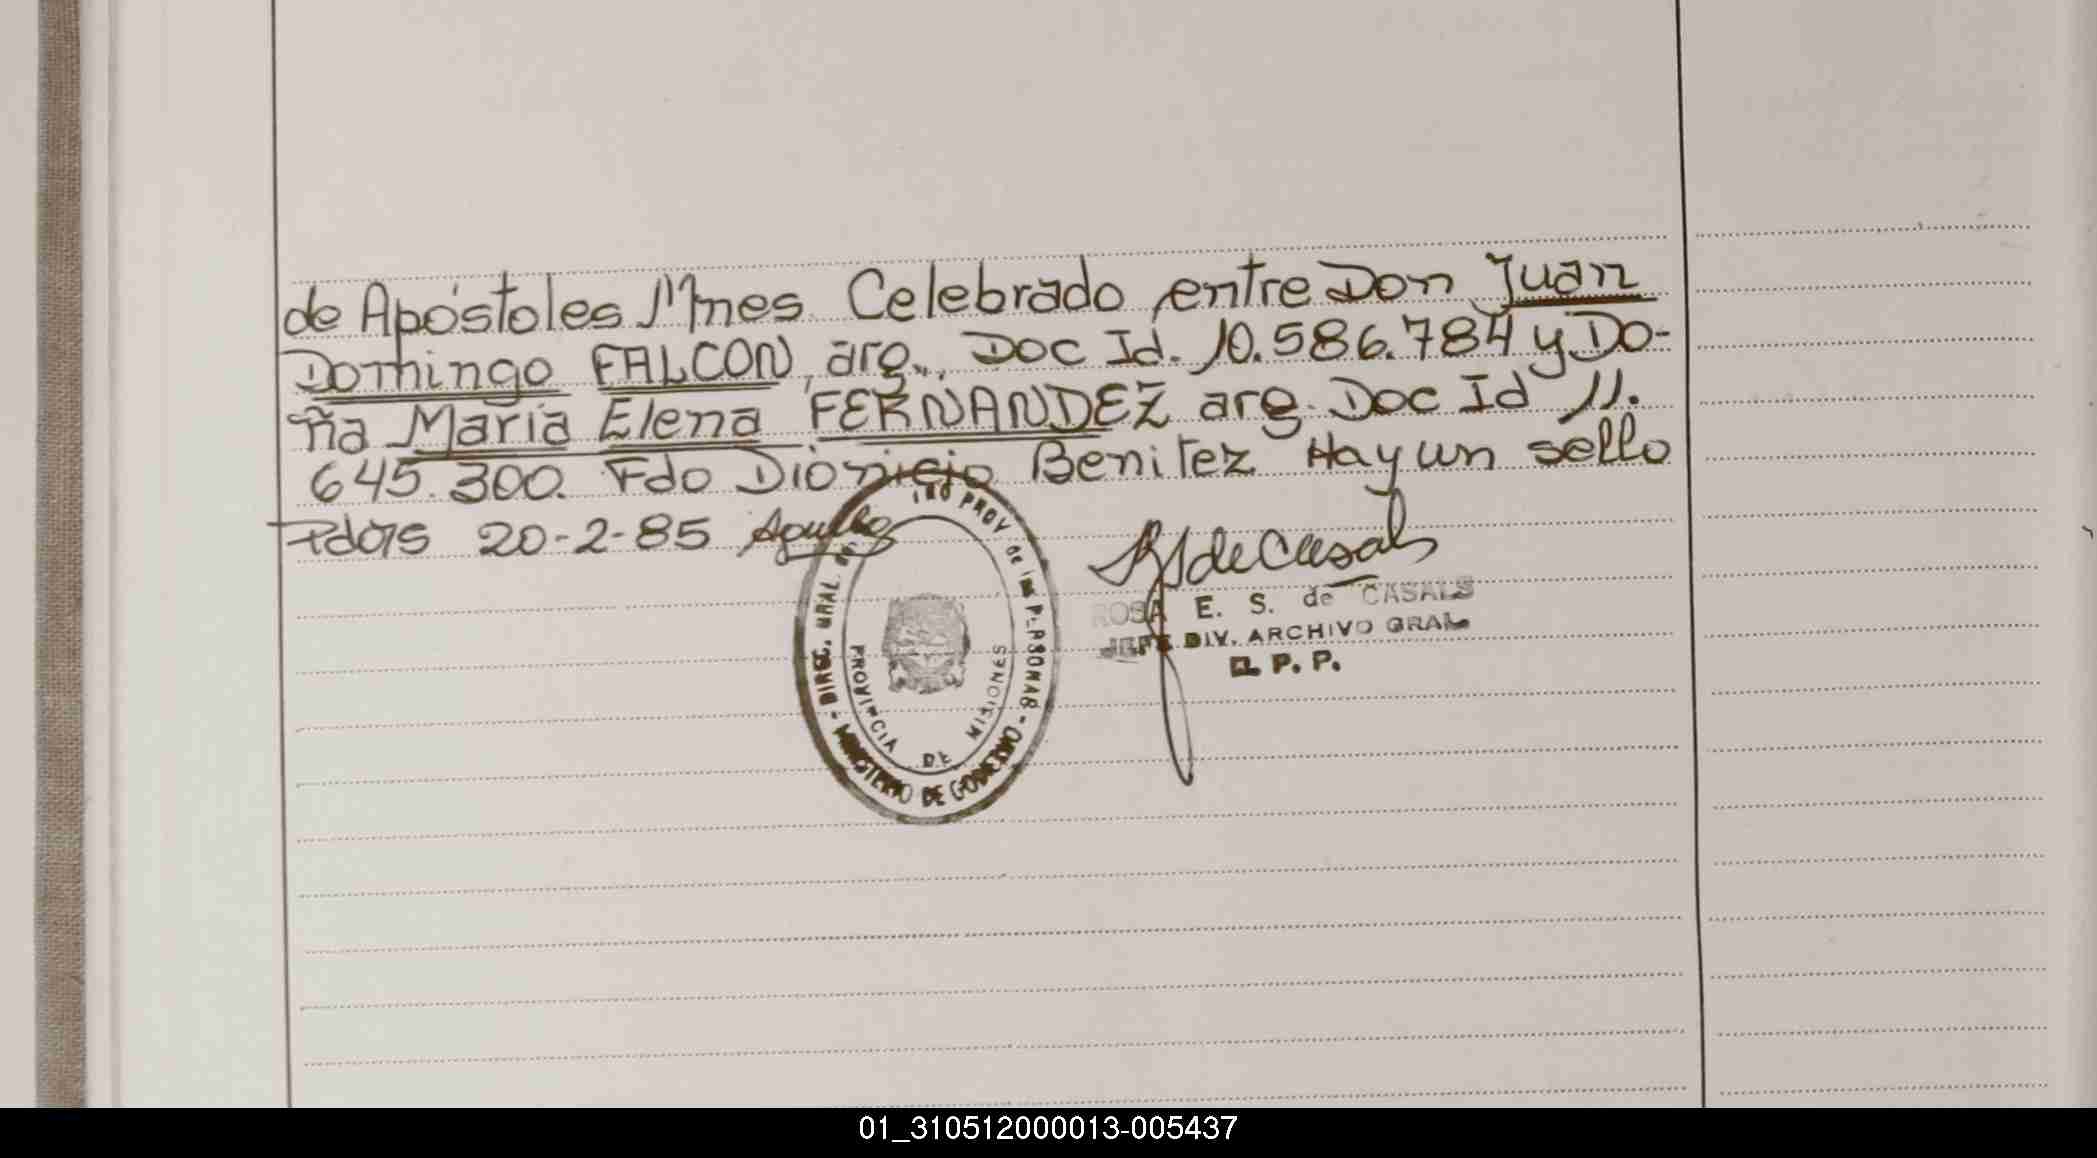 de Apóstoles Mnes. Celebrado entre Don Juan
Domingo FALCON, arg., Doc Id. 10.586.784 y Do-
ña Maria Elena FERNANDEZ arg. Doc Id 11.
645.300. Fdo Dionicio Benitez Hay un sello
Pdas 20-2-85
DIREC. GRAL. PROV de las PERSONAS - MINISTERIO DE GOBIERNO -
PROVINCIA DE MISIONES
RS de Casals
ROSA E. S. de CASALS
JEFE DIV. ARCHIVO GRAL
R. P. P.
01_310512000013-005437